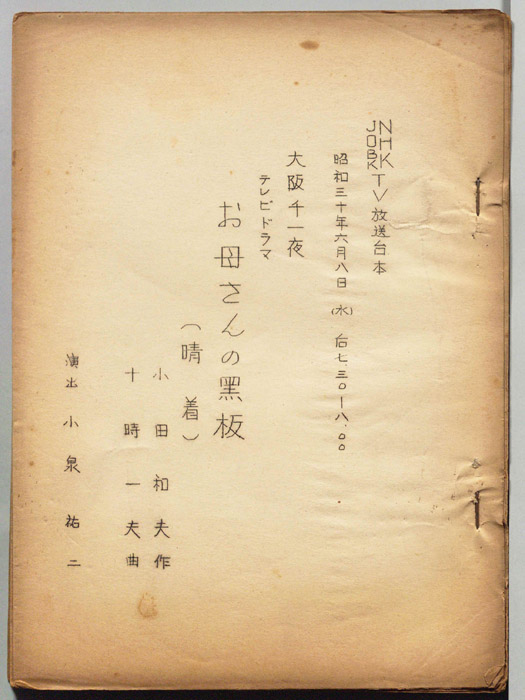 NHK
JOBK
TV放送台本
昭和三十年六月八日 (水) 后七.三〇－八.〇〇
大阪千一夜
テレビドラマ
お母さんの黑板
(晴着)
小田和夫作
十時一夫曲
演出 小泉祐二